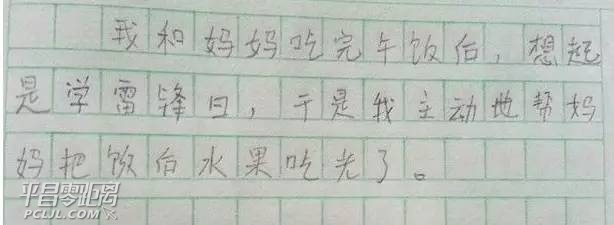 我和妈妈吃完午饭后，想起
是学雷锋日，于是我主动地帮妈
妈把饭后水果吃光了。
平昌零距离
PCLJL.COM